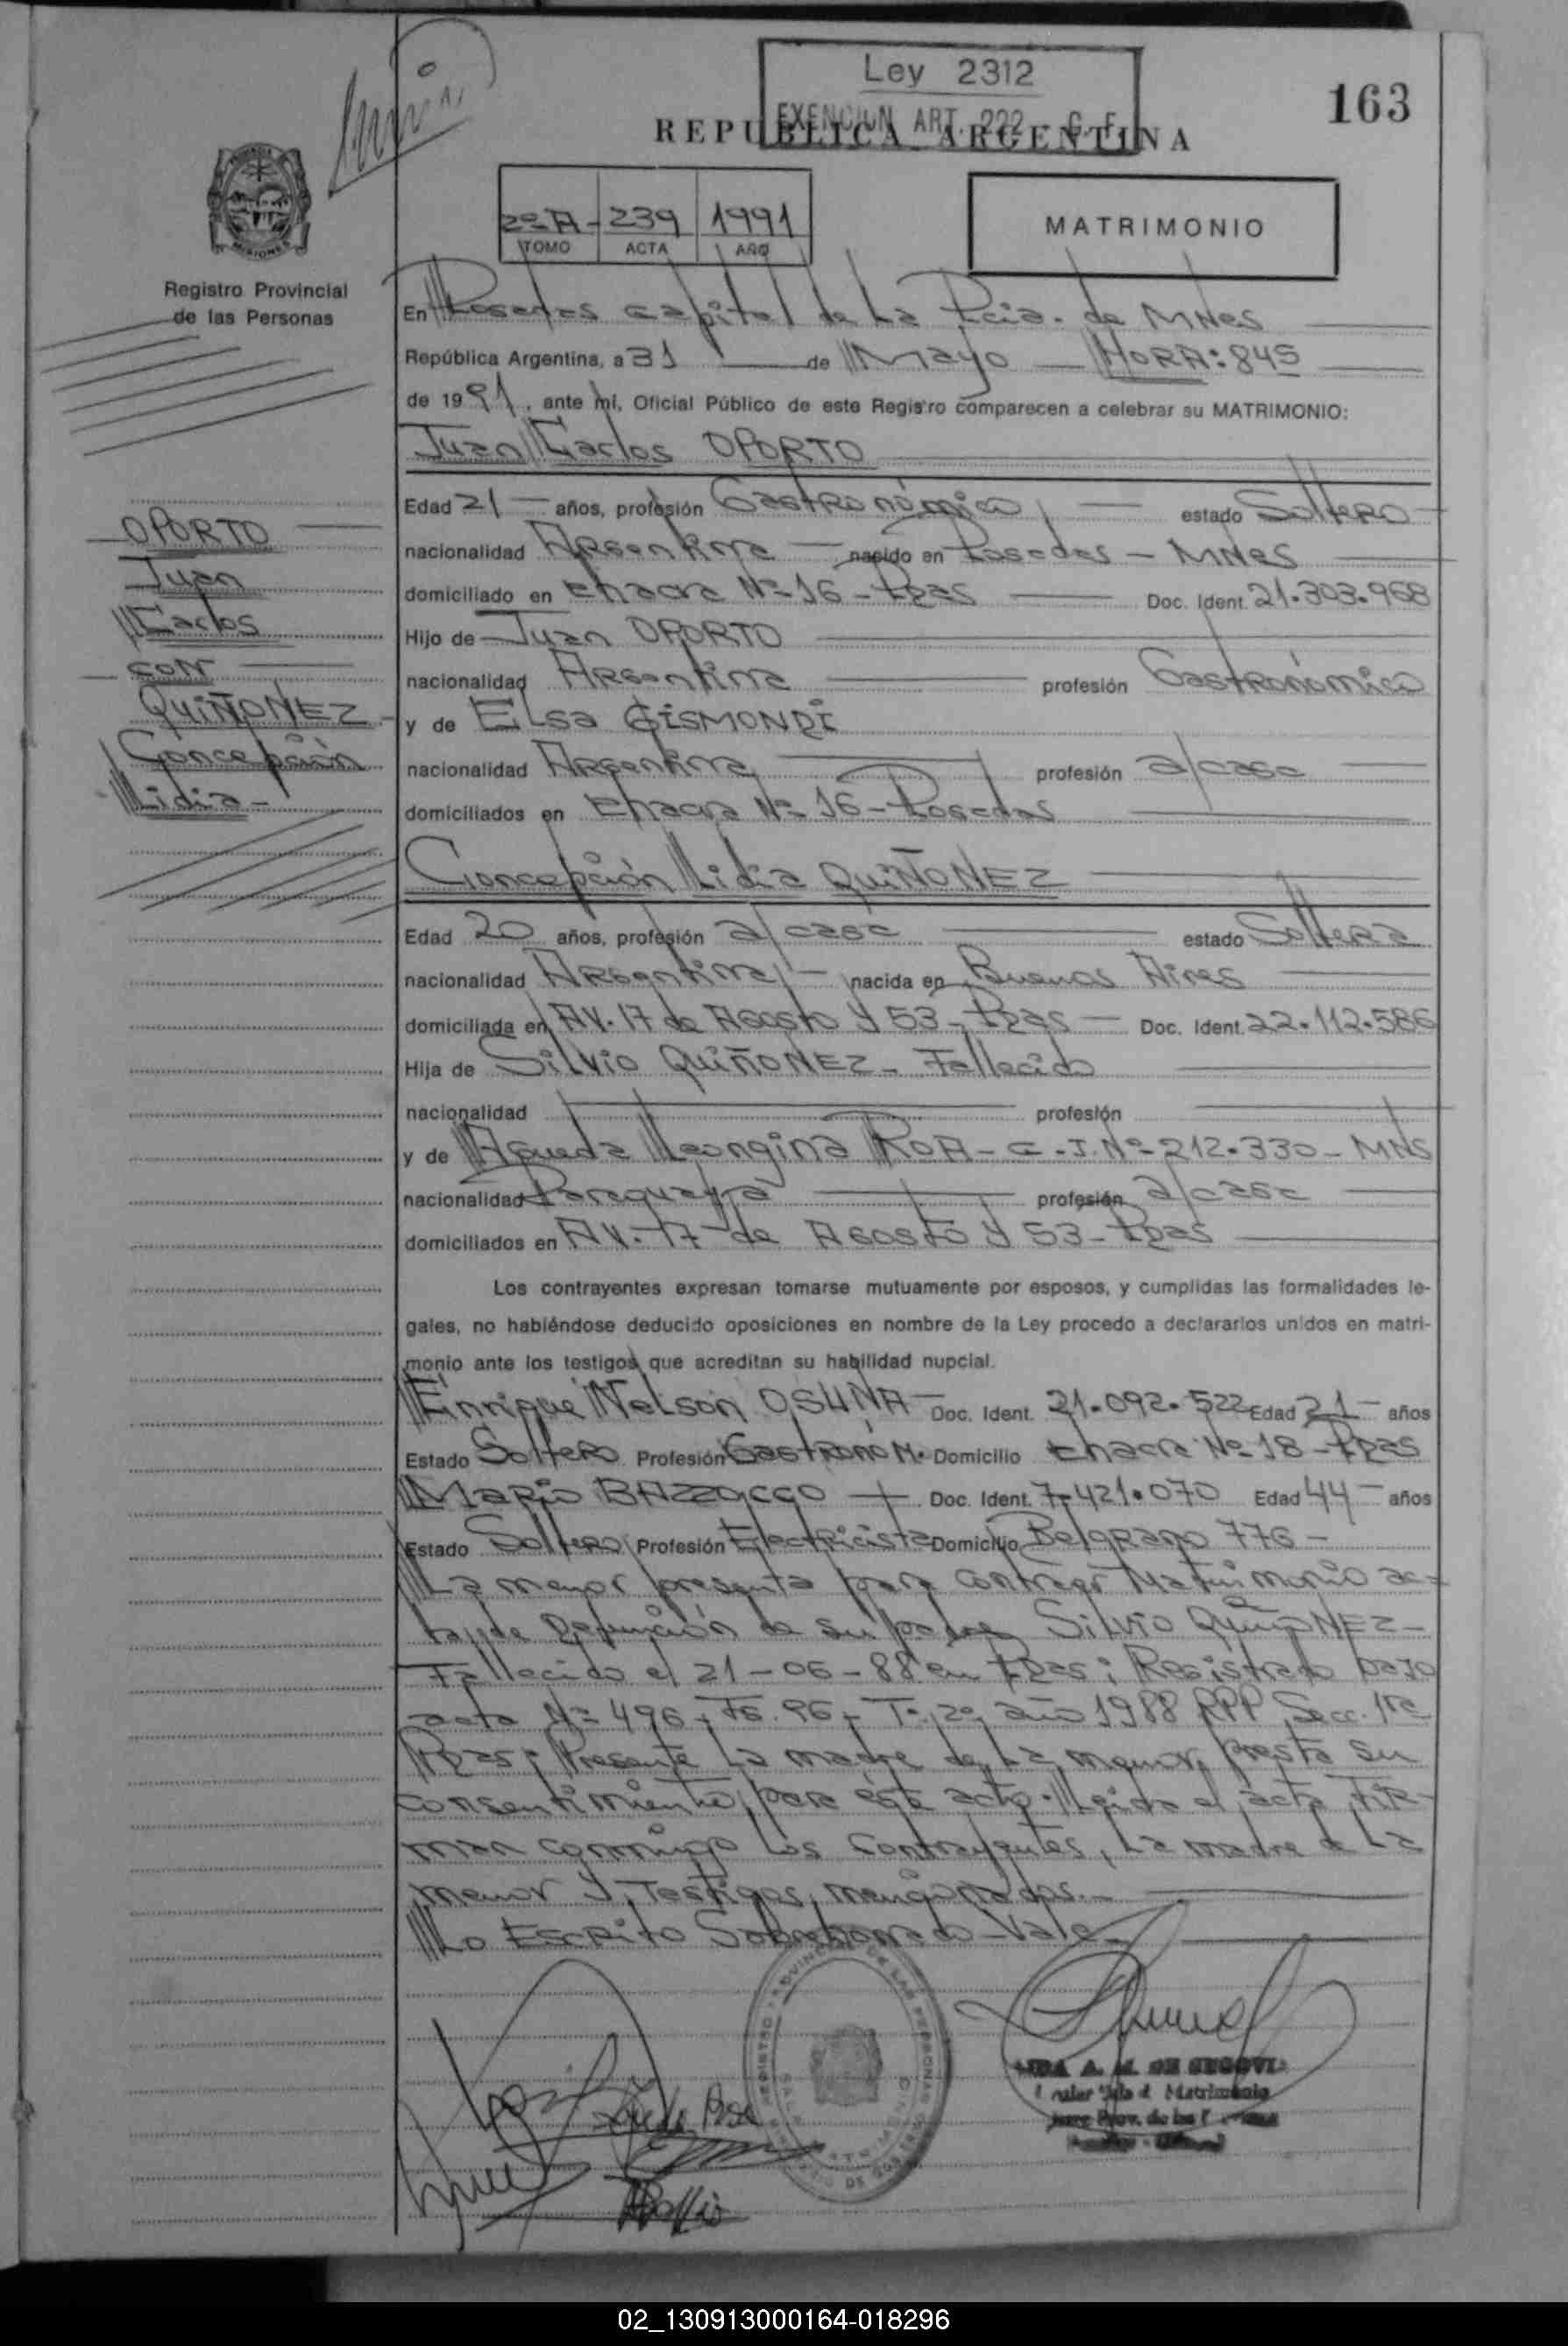 Ley 2312
EXENCION ART. 222 C. F.
163
REPUBLICA ARGENTINA
2º A - 239 1991
TOMO ACTA AÑO
MATRIMONIO
Registro Provincial
de las Personas
En Posadas capital de La Pcia. de MNES
República Argentina, a 31 de Mayo HORA: 845
de 1991, ante mi, Oficial Público de este Registro comparecen a celebrar su MATRIMONIO:
Juan Carlos OPORTO
OPORTO
Juan
Carlos
CON
QUIÑONEZ -
Concepción
Lidia -
Edad 21 años, profesión Gastronómico estado Soltero
nacionalidad Argentina nacido en Posadas - MNES
domiciliado en chacra Nº 16 - Ppas Doc. Ident. 21.303.968
Hijo de Juan OPORTO
nacionalidad Argentina profesión Gastronómico
y de ELSa GISMONDI
nacionalidad Argentina profesión a/casa
domiciliados en chacra Nº 16 - Posadas
Concepción Lidia QUIÑONEZ
Edad 20 años, profesión a/casa estado Soltera
nacionalidad Argentina nacida en Buenos Aires
domiciliada en AV. 17 de Agosto y 53 - Ppas Doc. Ident. 22.112.586
Hija de Silvio QUIÑONEZ - Fallecido
nacionalidad profesión
y de Agueda Leongina ROA - C.I. Nº 212.330 - MNS
nacionalidad Paraguaya profesión a/casa
domiciliados en AV. 17 de Agosto y 53 - Ppas
Los contrayentes expresan tomarse mutuamente por esposos, y cumplidas las formalidades le-
gales, no habiéndose deducido oposiciones en nombre de la Ley procedo a declararlos unidos en matri-
monio ante los testigos que acreditan su habilidad nupcial.
Enrique Nelson OSUNA Doc. Ident. 21.092.522 Edad 21 años
Estado Soltero Profesión Gastronóm. Domicilio chacra Nº 18 - Ppas
Mario Doc. Ident. 7.421.070 Edad 44 años
Estado Soltero Profesión Electricista Domicilio Belgrano 776 -
La menor presenta para contraer Matrimonio ac-
ta de Defunción de su padre Silvio QUIÑONEZ -
Fallecido el 21-06-88 en Ppas; Registrado bajo
acta Nº 496, Fs. 96, Tº 2º, año 1988 RPP Secc. 1ra
Ppas; Presente La madre de La menor, presta su
consentimiento para este acto. Leida el acta FIR-
man conmigo los contrayentes, La madre de La
menor y testigos mencionados. -
Lo Escrito Sobreborrado - Vale -
REGISTRO PROVINCIAL DE LAS PERSONAS
A. M. DE SEGOVIA
02_130913000164-018296